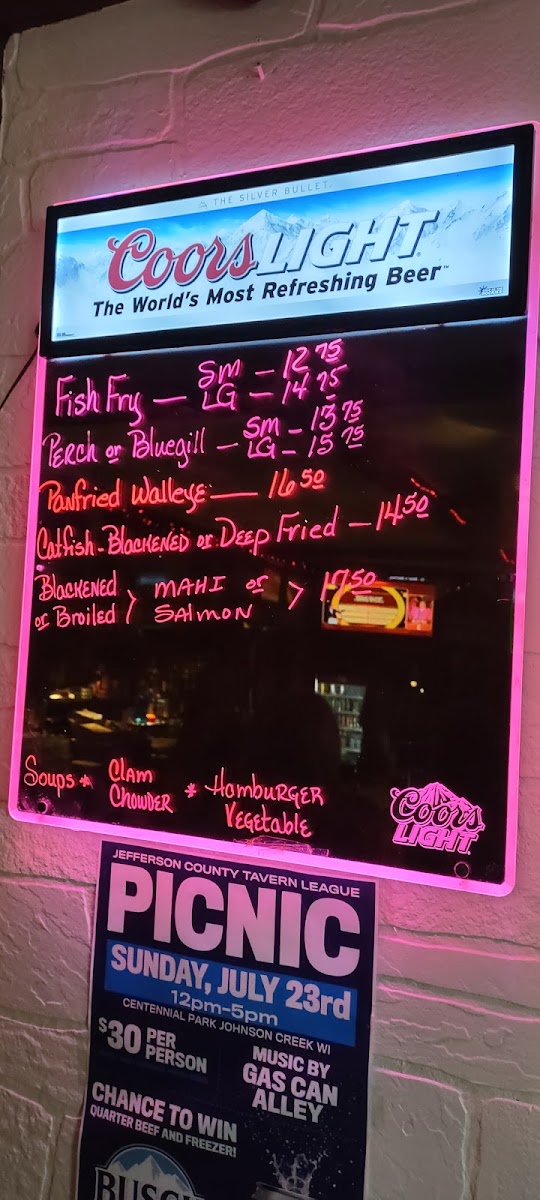 THE SILVER BULLET.
Coors LIGHT
The World's Most Refreshing Beer™
Fish Fry — SM — 12 75
LG — 14 75
Perch or Bluegill — SM — 13 75
LG — 15 75
Panfried Walleye — 16 50
Catfish - Blackened or Deep Fried — 14 50
Blackened > MAHI or > 17 50
or Broiled SALMON
Soups * Clam * Hamburger
Chowder Vegetable
Coors
LIGHT
JEFFERSON COUNTY TAVERN LEAGUE
PICNIC
SUNDAY, JULY 23rd
12pm-5pm
CENTENNIAL PARK JOHNSON CREEK WI
$30 PER
PERSON
MUSIC BY
GAS CAN
ALLEY
CHANCE TO WIN
QUARTER BEEF AND FREEZER!
BUSCH